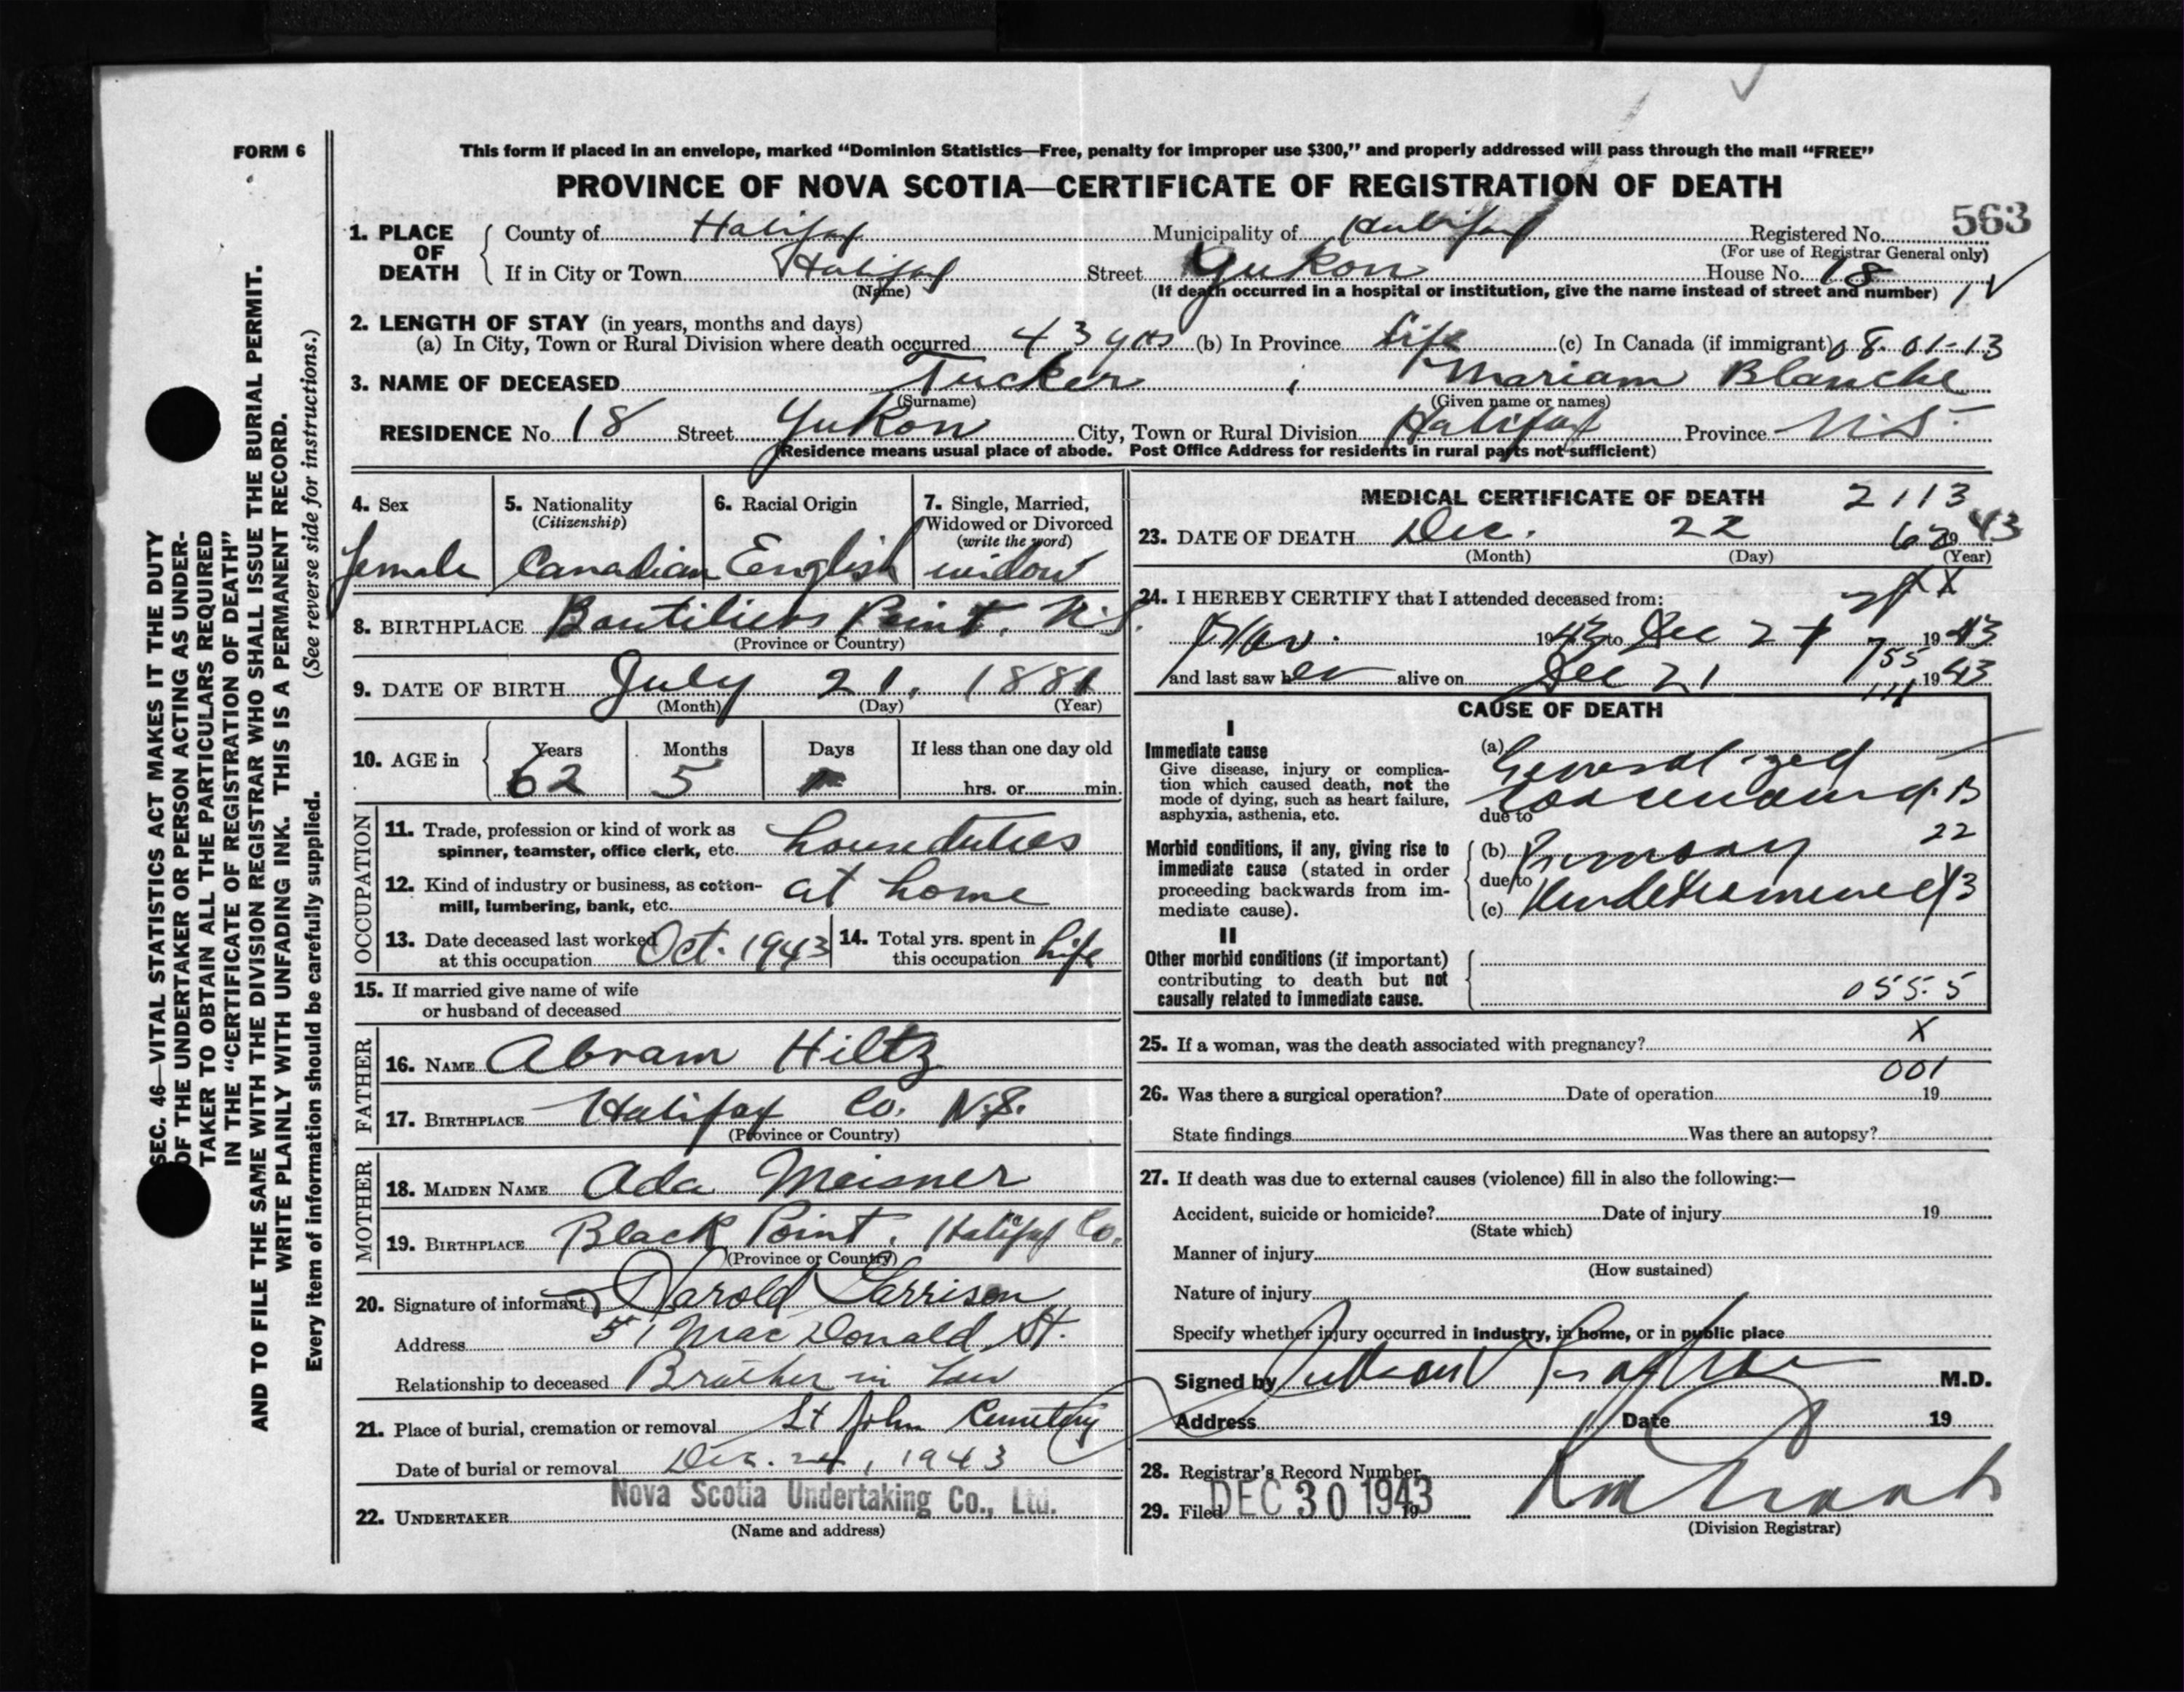 FORM 6
This form if placed in an envelope, marked “Dominion Statistics—Free, penalty for improper use $300,” and properly addressed will pass through the mail “FREE”
PROVINCE OF NOVA SCOTIA—CERTIFICATE OF REGISTRATION OF DEATH
563
1. PLACE OF DEATH
County of Halifax Municipality of Halifax Registered No.
(For use of Registrar General only)
If in City or Town Halifax Street Yukon House No. 18
(Name) (If death occurred in a hospital or institution, give the name instead of street and number)
2. LENGTH OF STAY (in years, months and days)
(a) In City, Town or Rural Division where death occurred 43 yrs (b) In Province Life (c) In Canada (if immigrant) 08-01-13
3. NAME OF DECEASED Tucker , Mariam Blanche
(Surname) (Given name or names)
RESIDENCE No. 18 Street Yukon City, Town or Rural Division Halifax Province N.S.
(Residence means usual place of abode. Post Office Address for residents in rural parts not sufficient)
4. Sex
female
5. Nationality
(Citizenship)
Canadian
6. Racial Origin
English
7. Single, Married, Widowed or Divorced
(write the word)
widow
8. BIRTHPLACE Boutiliers Point. N.S.
(Province or Country)
9. DATE OF BIRTH July 21, 1881
(Month) (Day) (Year)
10. AGE in Years Months Days If less than one day old
62 5 hrs. or min.
OCCUPATION
11. Trade, profession or kind of work as
spinner, teamster, office clerk, etc. house duties
12. Kind of industry or business, as cotton-
mill, lumbering, bank, etc. at home
13. Date deceased last worked
at this occupation Oct. 1943
14. Total yrs. spent in
this occupation Life
15. If married give name of wife
or husband of deceased
FATHER
16. NAME Abram Hiltz
17. BIRTHPLACE Halifax Co. N.S.
(Province or Country)
MOTHER
18. MAIDEN NAME Ada Meisner
19. BIRTHPLACE Black Point. Halifax Co.
(Province or Country)
20. Signature of informant Harold Garrison
Address 51 MacDonald St.
Relationship to deceased Brother in Law
21. Place of burial, cremation or removal St John Cemetery
Date of burial or removal Dec. 24, 1943
22. UNDERTAKER Nova Scotia Undertaking Co., Ltd.
(Name and address)
MEDICAL CERTIFICATE OF DEATH 2113
23. DATE OF DEATH Dec. 22 1943
(Month) (Day) (Year)
24. I HEREBY CERTIFY that I attended deceased from:
Nov. 1943 to Dec 21 1943
and last saw her alive on Dec 21 1943
CAUSE OF DEATH
I
Immediate cause
Give disease, injury or complica-
tion which caused death, not the
mode of dying, such as heart failure,
asphyxia, asthenia, etc.
(a) Generalized
due to
Morbid conditions, if any, giving rise to
immediate cause (stated in order
proceeding backwards from im-
mediate cause).
(b) Primary
due to
(c) Undetermined
II
Other morbid conditions (if important)
contributing to death but not
causally related to immediate cause.
055.5
25. If a woman, was the death associated with pregnancy? X
001
26. Was there a surgical operation? Date of operation 19
State findings Was there an autopsy?
27. If death was due to external causes (violence) fill in also the following:—
Accident, suicide or homicide? Date of injury 19
(State which)
Manner of injury
(How sustained)
Nature of injury
Specify whether injury occurred in industry, in home, or in public place
Signed by M.D.
Address Date 19
28. Registrar's Record Number
29. Filed DEC 30 1943 19
(Division Registrar)
SEC. 46—VITAL STATISTICS ACT MAKES IT THE DUTY
OF THE UNDERTAKER OR PERSON ACTING AS UNDER-
TAKER TO OBTAIN ALL THE PARTICULARS REQUIRED
IN THE “CERTIFICATE OF REGISTRATION OF DEATH”
AND TO FILE THE SAME WITH THE DIVISION REGISTRAR WHO SHALL ISSUE THE BURIAL PERMIT.
WRITE PLAINLY WITH UNFADING INK. THIS IS A PERMANENT RECORD.
Every item of information should be carefully supplied. (See reverse side for instructions.)